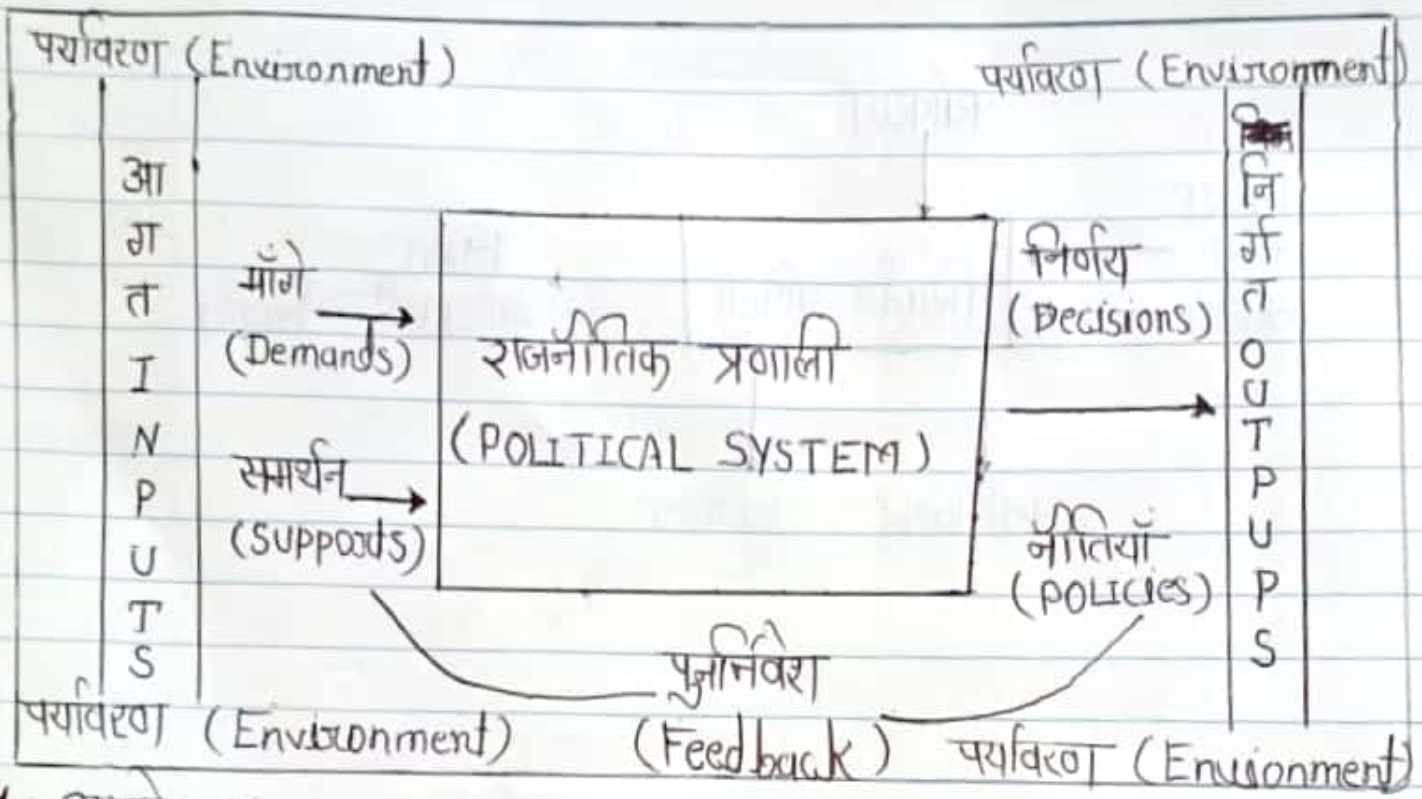 पर्यावरण (Environment)
पर्यावरण (Environment)
आगत INPUTS
माँगे
(Demands)
समर्थन
(Suppoods)
राजनीतिक प्रणाली
(POLITICAL SYSTEM)
निर्णय
(Decisions)
नीतियाँ
(POLICIES)
निर्गत OUTPUPS
पुर्ननिवेश
(Feedback)
पर्यावरण (Environment)
पर्यावरण (Enuionment)